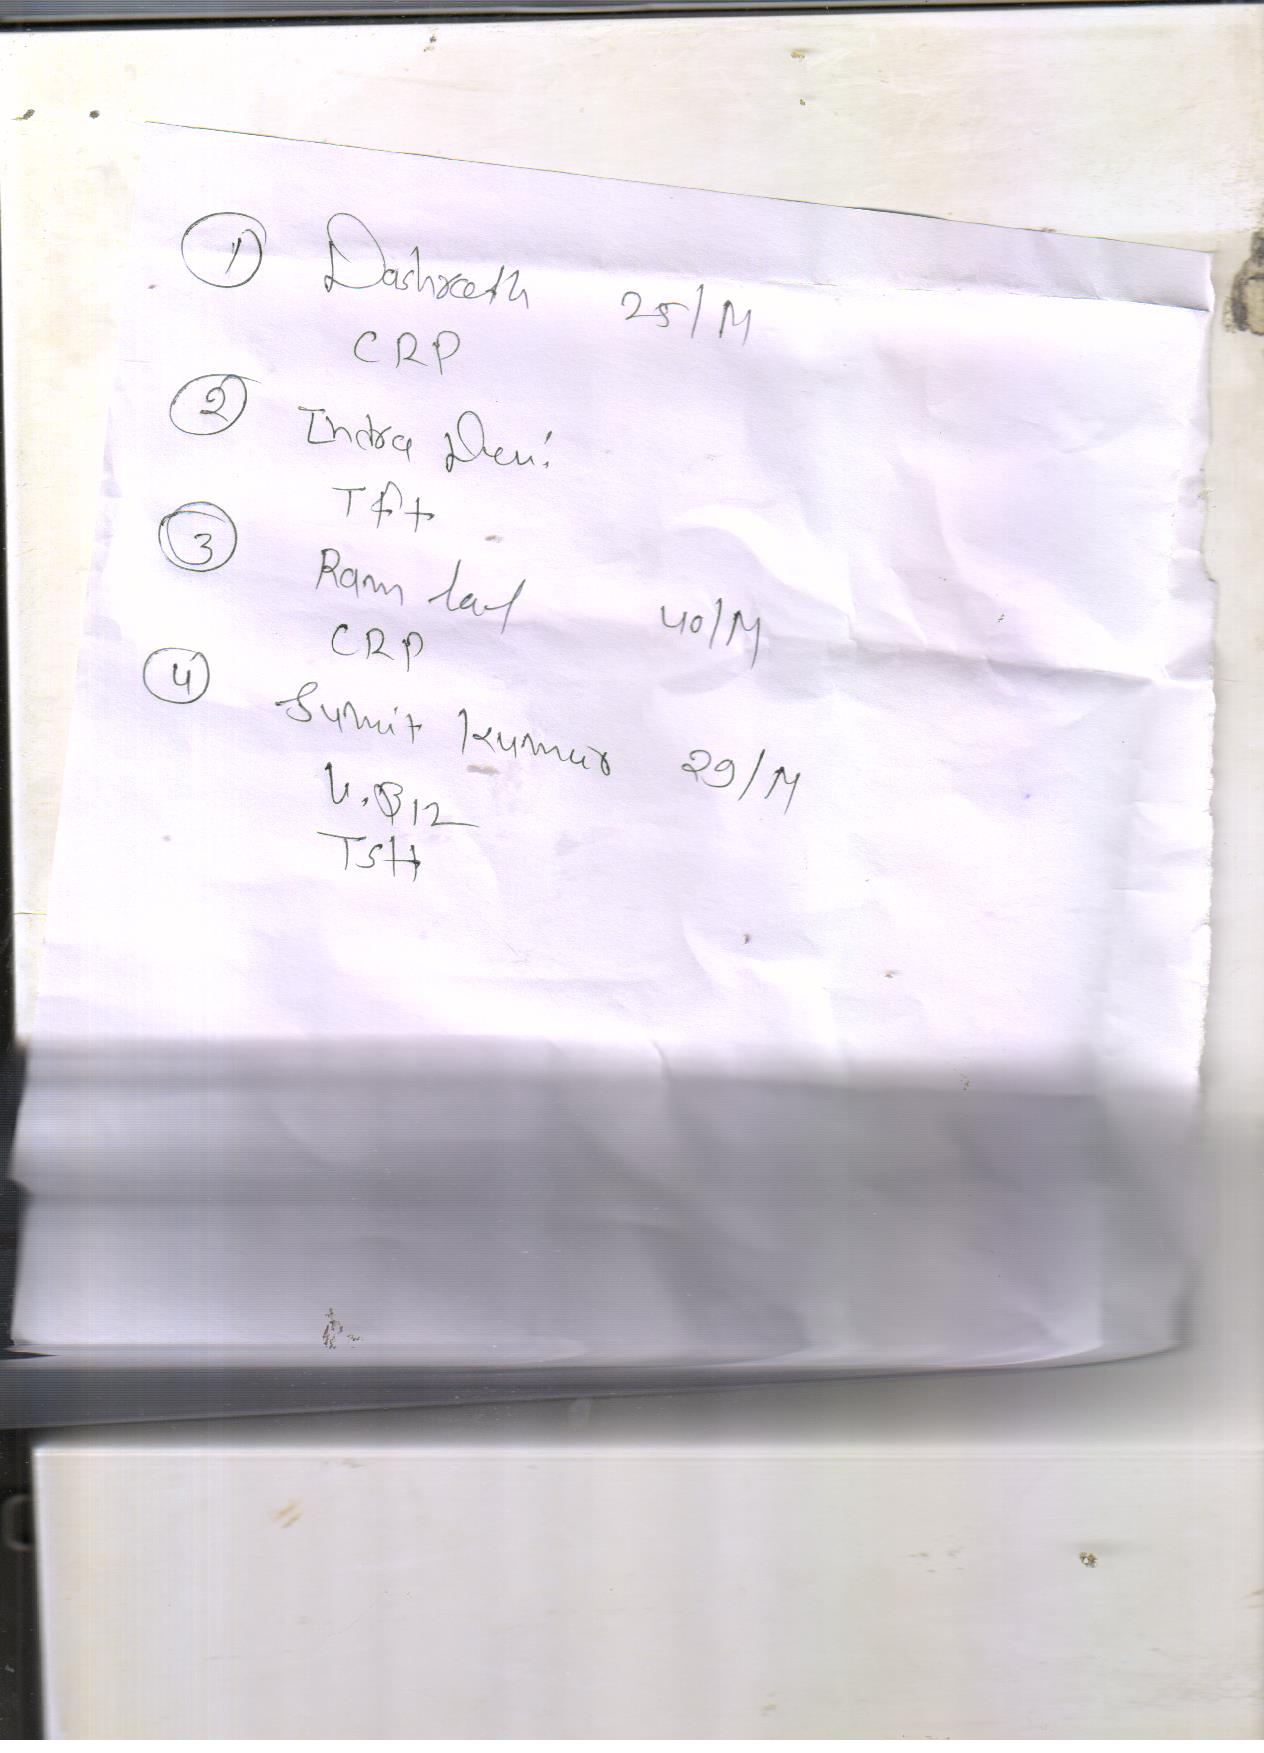 1 Dashrath 25/M
CRP
2 Indra Devi
TFT
3 Ram lal 40/M
CRP
4 Sumit Kumar 29/M
V.B12
TSH